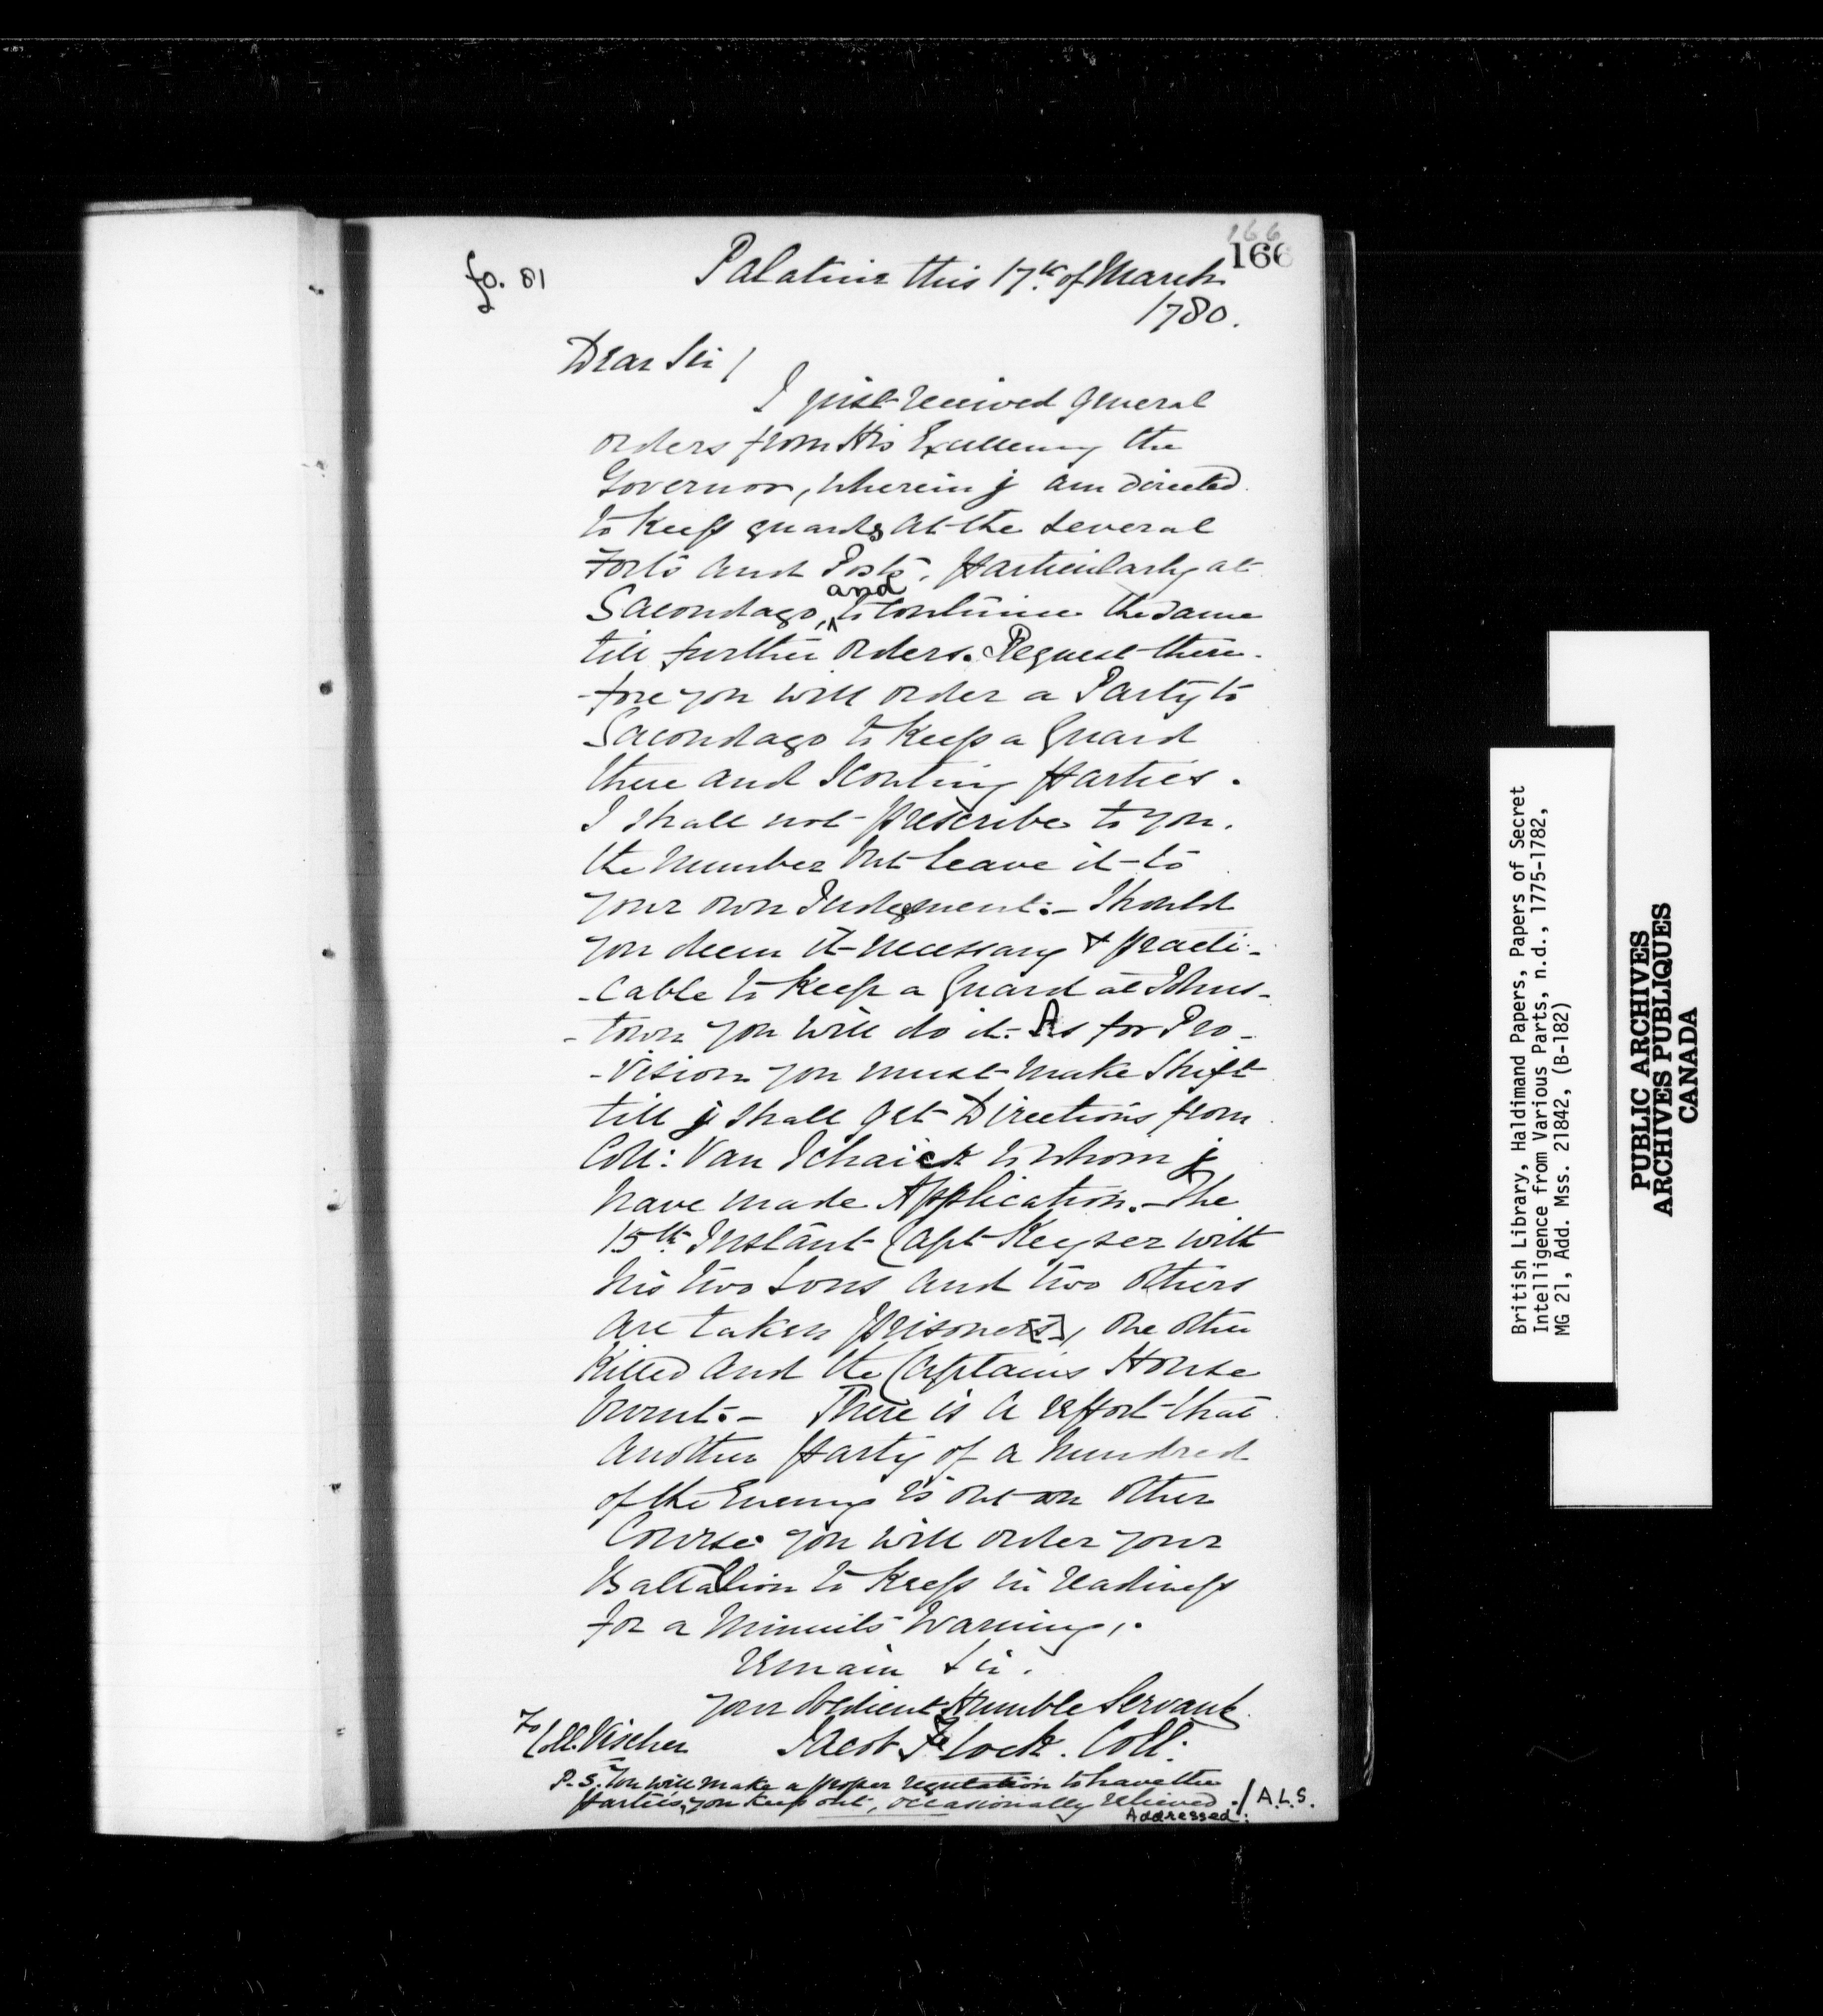 166
166
fo. 81
Palatine this 17th. of March
1780.
Dear Sir /
I just received General
orders from His Excellency the
Governor, wherein j am directed
to keep guards at the several
Forts and Posts, particularly at
Sacondago, and to continue the same
till further orders. Request there-
-fore you will order a Party to
Sacondago to keep a Guard
there and Scouting parties.
I shall not prescribe to you.
the number but leave it to
your own Judgement:- Should
you deem it necessary & practi-
-cable to keep a Guard at Johns-
-town you will do it. As for Pro-
-vision you must make shift
till j shall get Directions from
Coll: Van Schaick to whom j
have made Application.- The
15th. Instant Capt Keyser with
his two Sons and two others
are taken prisoner[s], one other
Killed and the Captains House
burnt:- There is a report that
another party of a hundred
of the Enemy is out on other
Course you will order your
Battalion to keep in readiness
for a Minuits Warning,.
remain Sir.
your obedient Humble Servant.
To Coll. Vischer
Jacob Klock. Coll:
P.S. You will make a proper regulation to have the
parties, you keep out, occasionally relieved./ A.L.S.
Addressed:
British Library, Haldimand Papers, Papers of Secret
Intelligence from Various Parts, n.d., 1775-1782,
MG 21, Add. Mss. 21842, (B-182)
PUBLIC ARCHIVES
ARCHIVES PUBLIQUES
CANADA